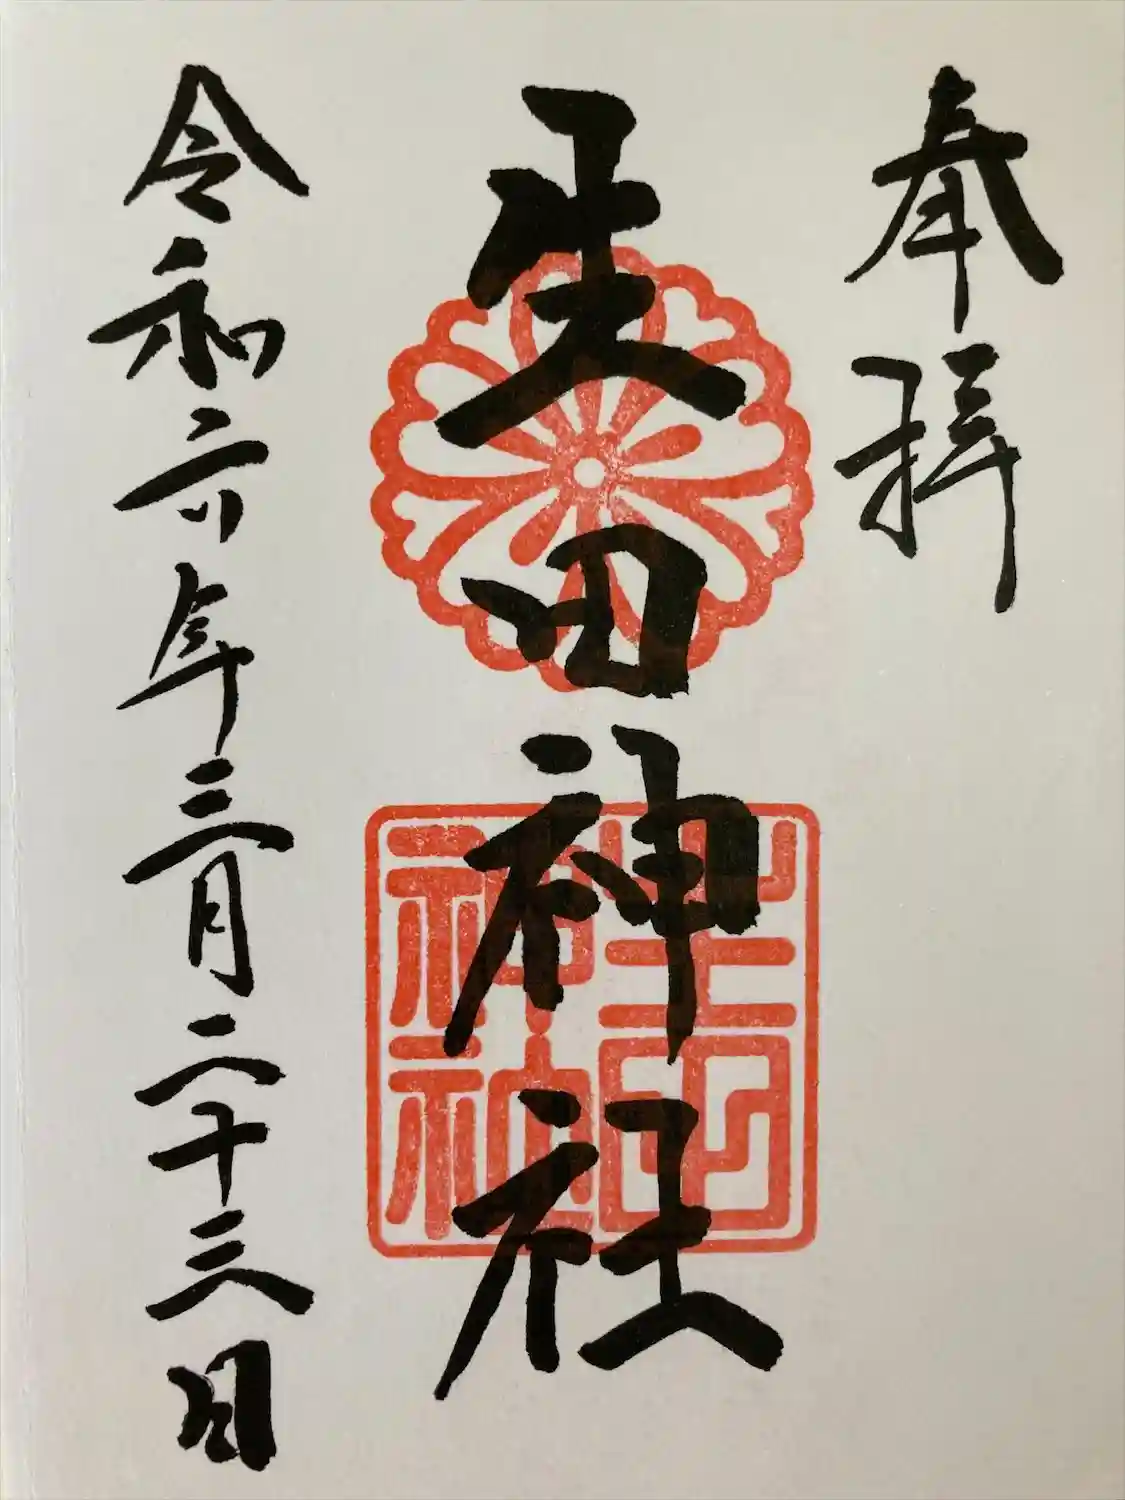 奉拝
生田神社
生田
神社
令和六年三月二十三日